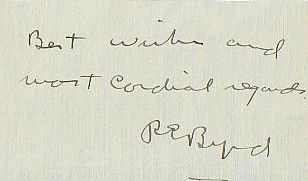 Best wishes and
most cordial regards
R E Byrd